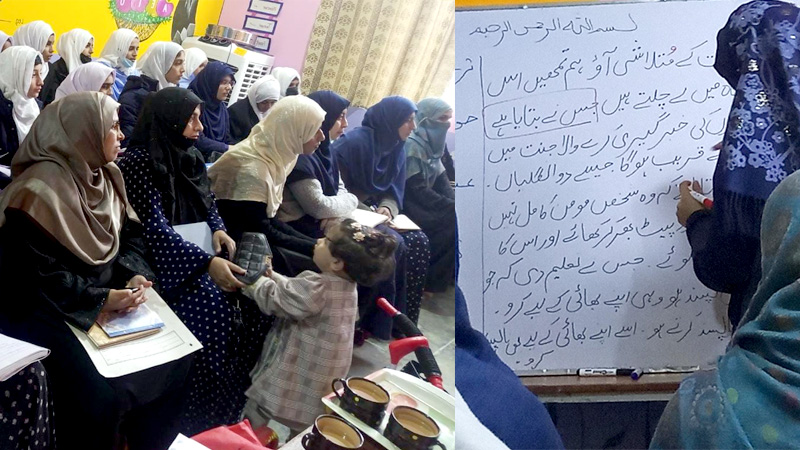 بسم اللہ الرحمن الرحیم
کے متلاشی آؤ ہم تمھیں اس
میں لے چلتے ہیں جس نے بتایا ہے
کی خبر گیری کرنے والا جنت میں
قریب ہوگا جیسے دو انگلیاں۔
کہ وہ شخص مومن کامل نہیں
پیٹ بھر کر کھائے اور اس کا
جس نے تعلیم دی کہ جو
پسند ہو وہی اپنے بھائی کے لیے کرو۔
کرتے ہو۔ اسے اپنے بھائی کے لیے
کرو۔